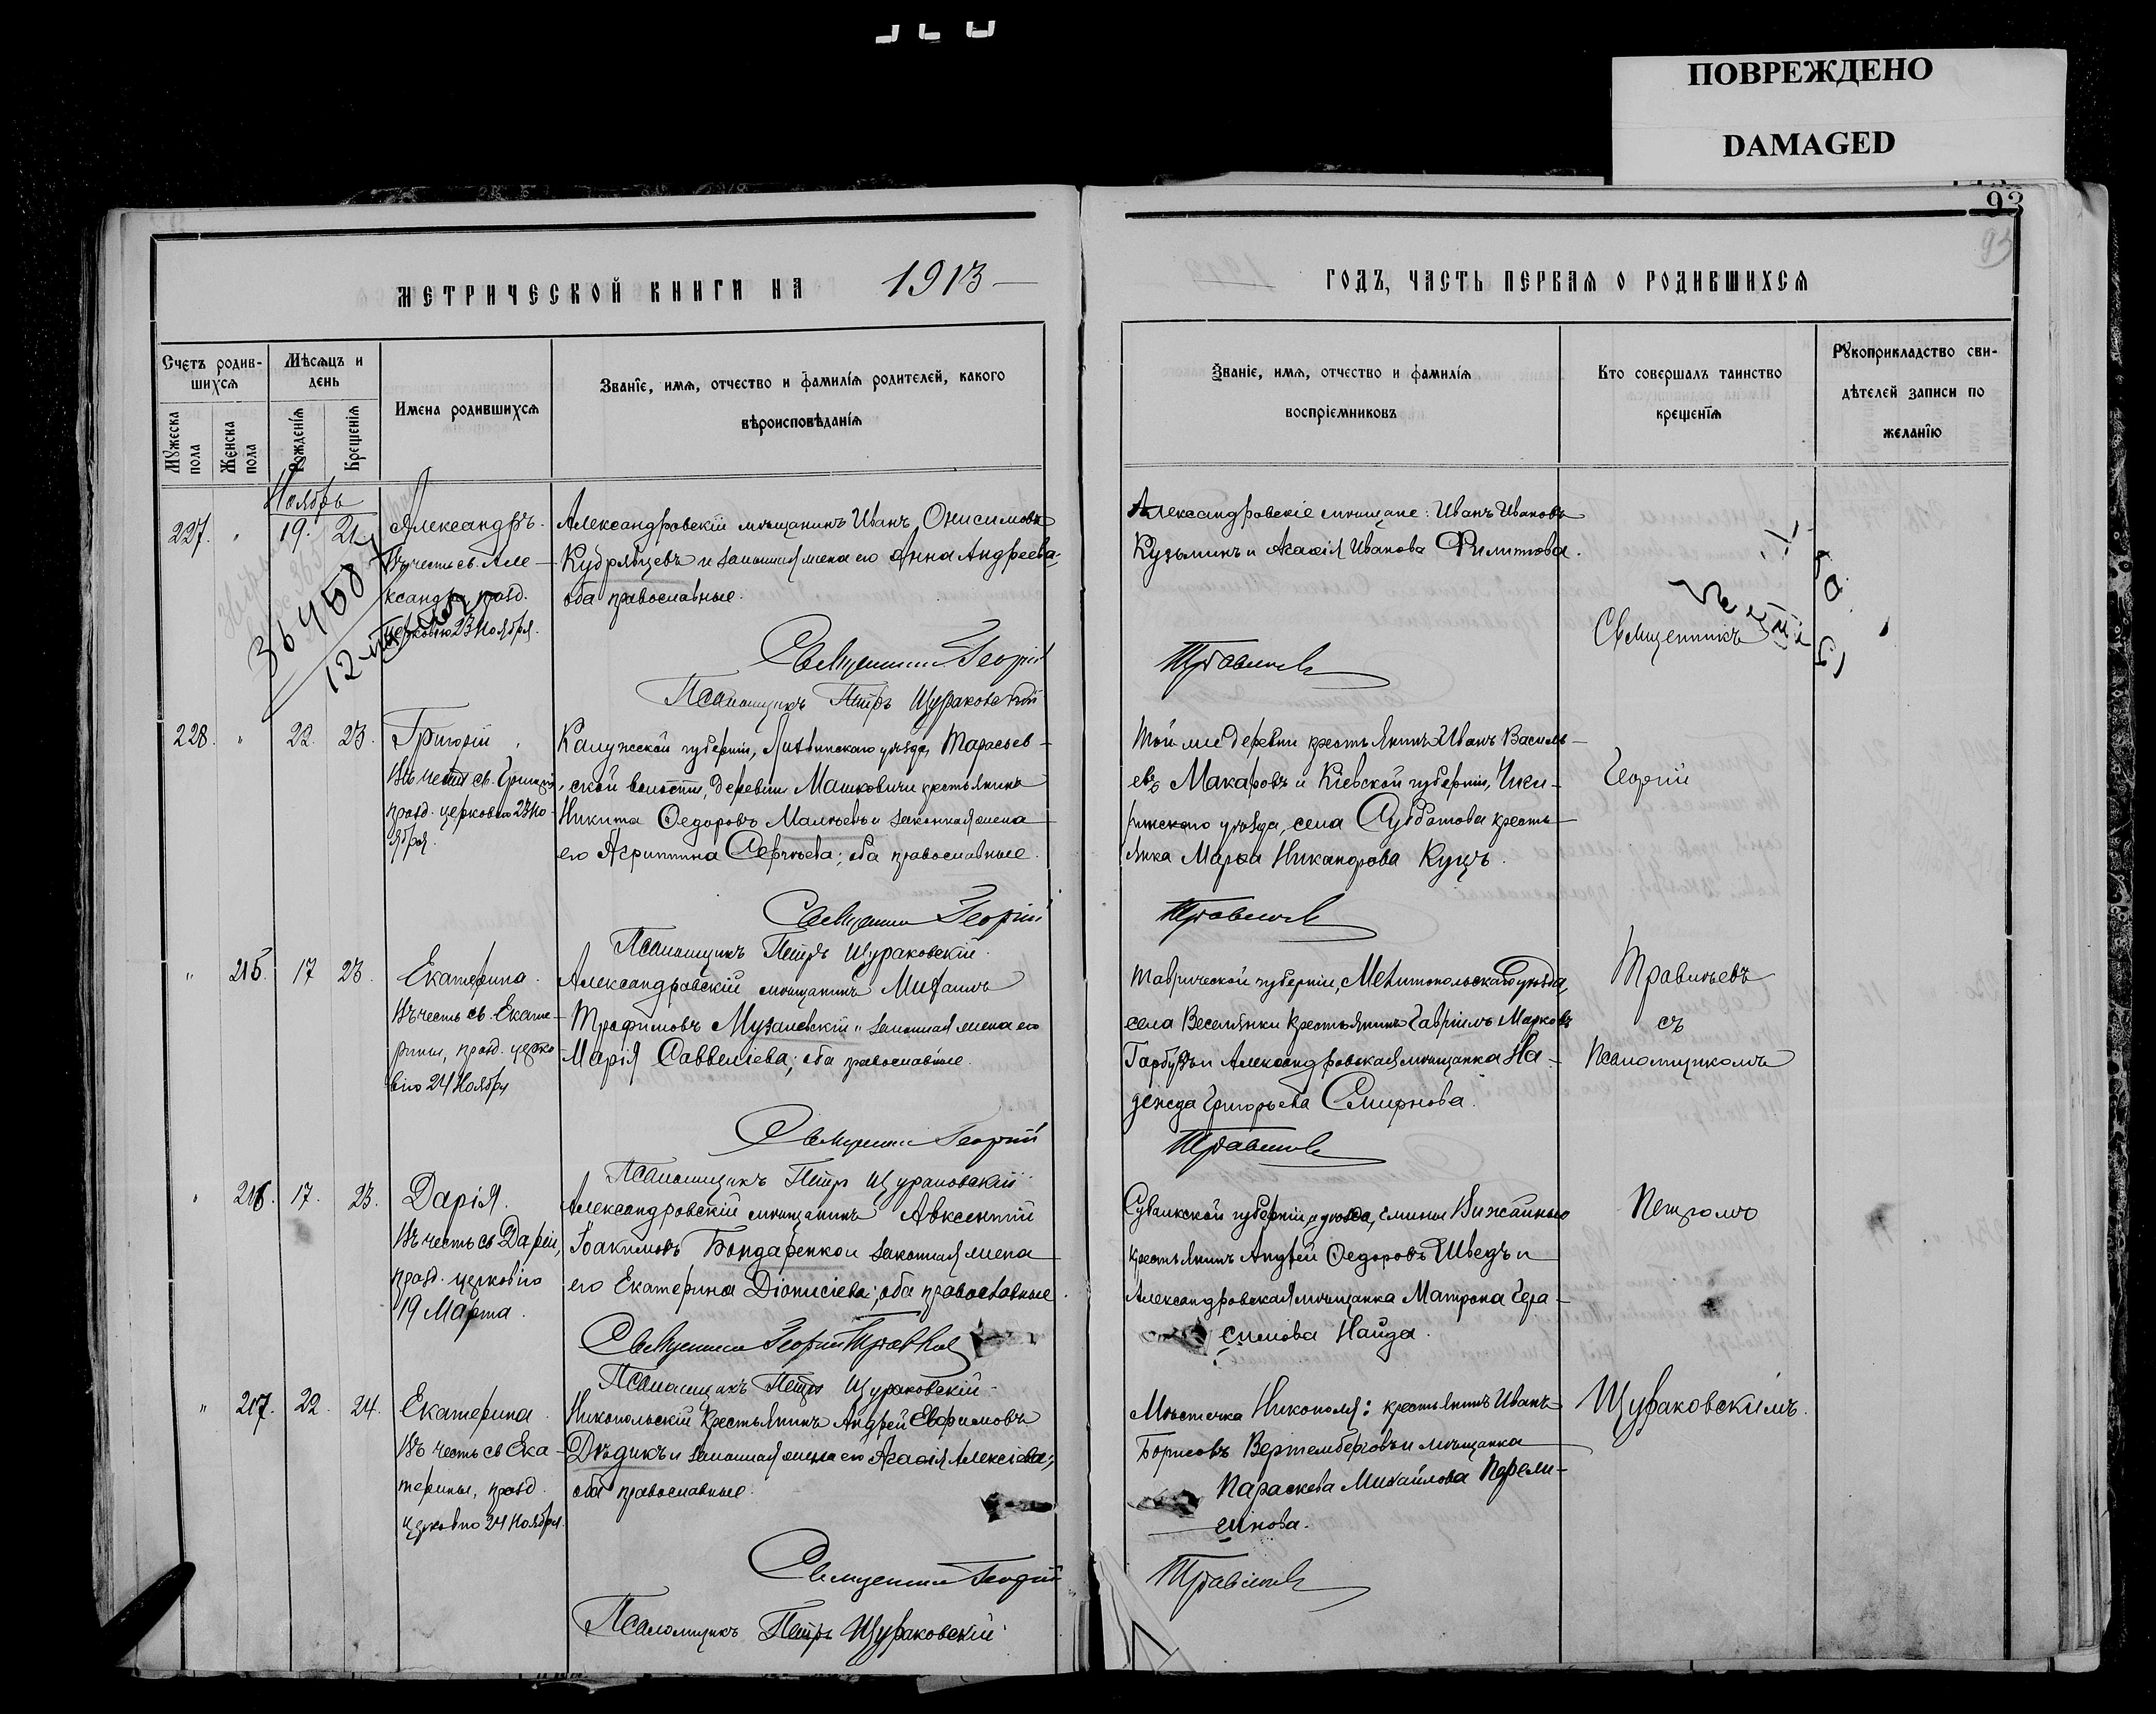 ПОВРЕЖДЕНО
DAMAGED
93
93
МЕТРИЧЕСКОЙ КНИГИ НА 1913
ГОДЪ, ЧАСТЬ ПЕРВАЯ О РОДИВШИХСЯ
Счетъ родив-
шихся
Мужеска пола
Женска пола
Мѣсяцъ и
день
Рожденія
Крещенія
Имена родившихся
Званіе, имя, отчество и фамилія родителей, какого
вѣроисповѣданія
Званіе, имя, отчество и фамилія
воспріемниковъ
Кто совершалъ таинство
крещенія
Рукоприкладство сви-
дѣтелей записи по
желанію
Ноябрь
227. " 19. 21
Александръ.
Въ честь св. Але-
ксандра, празд.
церковію 23 Ноября.
Александровскій мѣщанинъ Иванъ Онисимовъ
Кудрявцевъ и законная жена его Анна Андреева,
оба православные.
Священникъ Георгій
Псаломщикъ Петръ Щураковскій
Александровскіе мѣщане: Иванъ Ивановъ
Кузьминъ и Агафія Иванова Филиппова.
Священникъ
228. " 22. 23.
Григорій
Въ честь св. Григорія,
празд. церковію 23 Но-
ября.
Калужской губерніи, Лихвинскаго уѣзда, Тарасьев-
ской волости, деревни Машковичи крестьянинъ
Никита Федоровъ Малѣевъ и законная жена
его Агриппина Сергѣева; оба православные.
Священникъ Георгій
Псаломщикъ Петръ Щураковскій.
Той же деревни крестьянинъ Иванъ Василь-
евъ Макаровъ и Кіевской губерніи, Чиги-
ринскаго уѣзда, села Субботова кресть-
янка Марѳа Никандрова Куцъ.
Георгій
" 215. 17 23.
Екатерина.
Въ честь св. Екате-
рины, празд. церко-
вію 24 Ноября
Александровскій мѣщанинъ Михаилъ
Трофимовъ Музалевскій и законная жена его
Марія Саввеліева; оба православные.
Священникъ Георгій
Псаломщикъ Петръ Щураковскій
Таврической губерніи, Мелитопольскаго уѣзда,
села Веселянки крестьянинъ Гавріилъ Марковъ
Гарбузъ и Александровская мѣщанка На-
дежда Григорьева Смирнова.
Травинъевъ
съ
Псаломщикомъ
" 216. 17. 23.
Дарія.
Въ честь св Даріи,
празд. церковію
19 Марта.
Александровскій мѣщанинъ Авксентій
Іоакимовъ Бондаренко и законная жена
его Екатерина Діонисіева; оба православные.
Священникъ Георгій
Псаломщикъ Петръ Щураковскій
Сувалкской губерніи и уѣзда, гмины Вижайны
крестьянинъ Андрей Федоровъ Шведъ и
Александровская мѣщанка Матрона Гера-
симова Найда.
Петромъ
" 217. 22. 24.
Екатерина.
Въ честь св Ека-
терины, празд.
церковію 24 Ноября.
Никопольскій крестьянинъ Андрей Евфимовъ
Дѣдикъ и законная жена его Агафія Алексіева;
оба православные.
Священникъ Георгій
Псаломщикъ Петръ Щураковскій
Мѣстечка Никополя: крестьянинъ Иванъ
Борисовъ Вертембергъ и мѣщанка
Параскева Михайлова
Щураковскимъ.